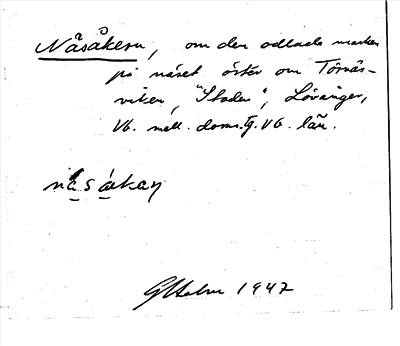 Nåsåkern, om den odlade marken
på näset öster om Törnäs-
viken, "Staden", Lövånger,
Vb. mell. doms. Vb. län.
nåsåkan
1947